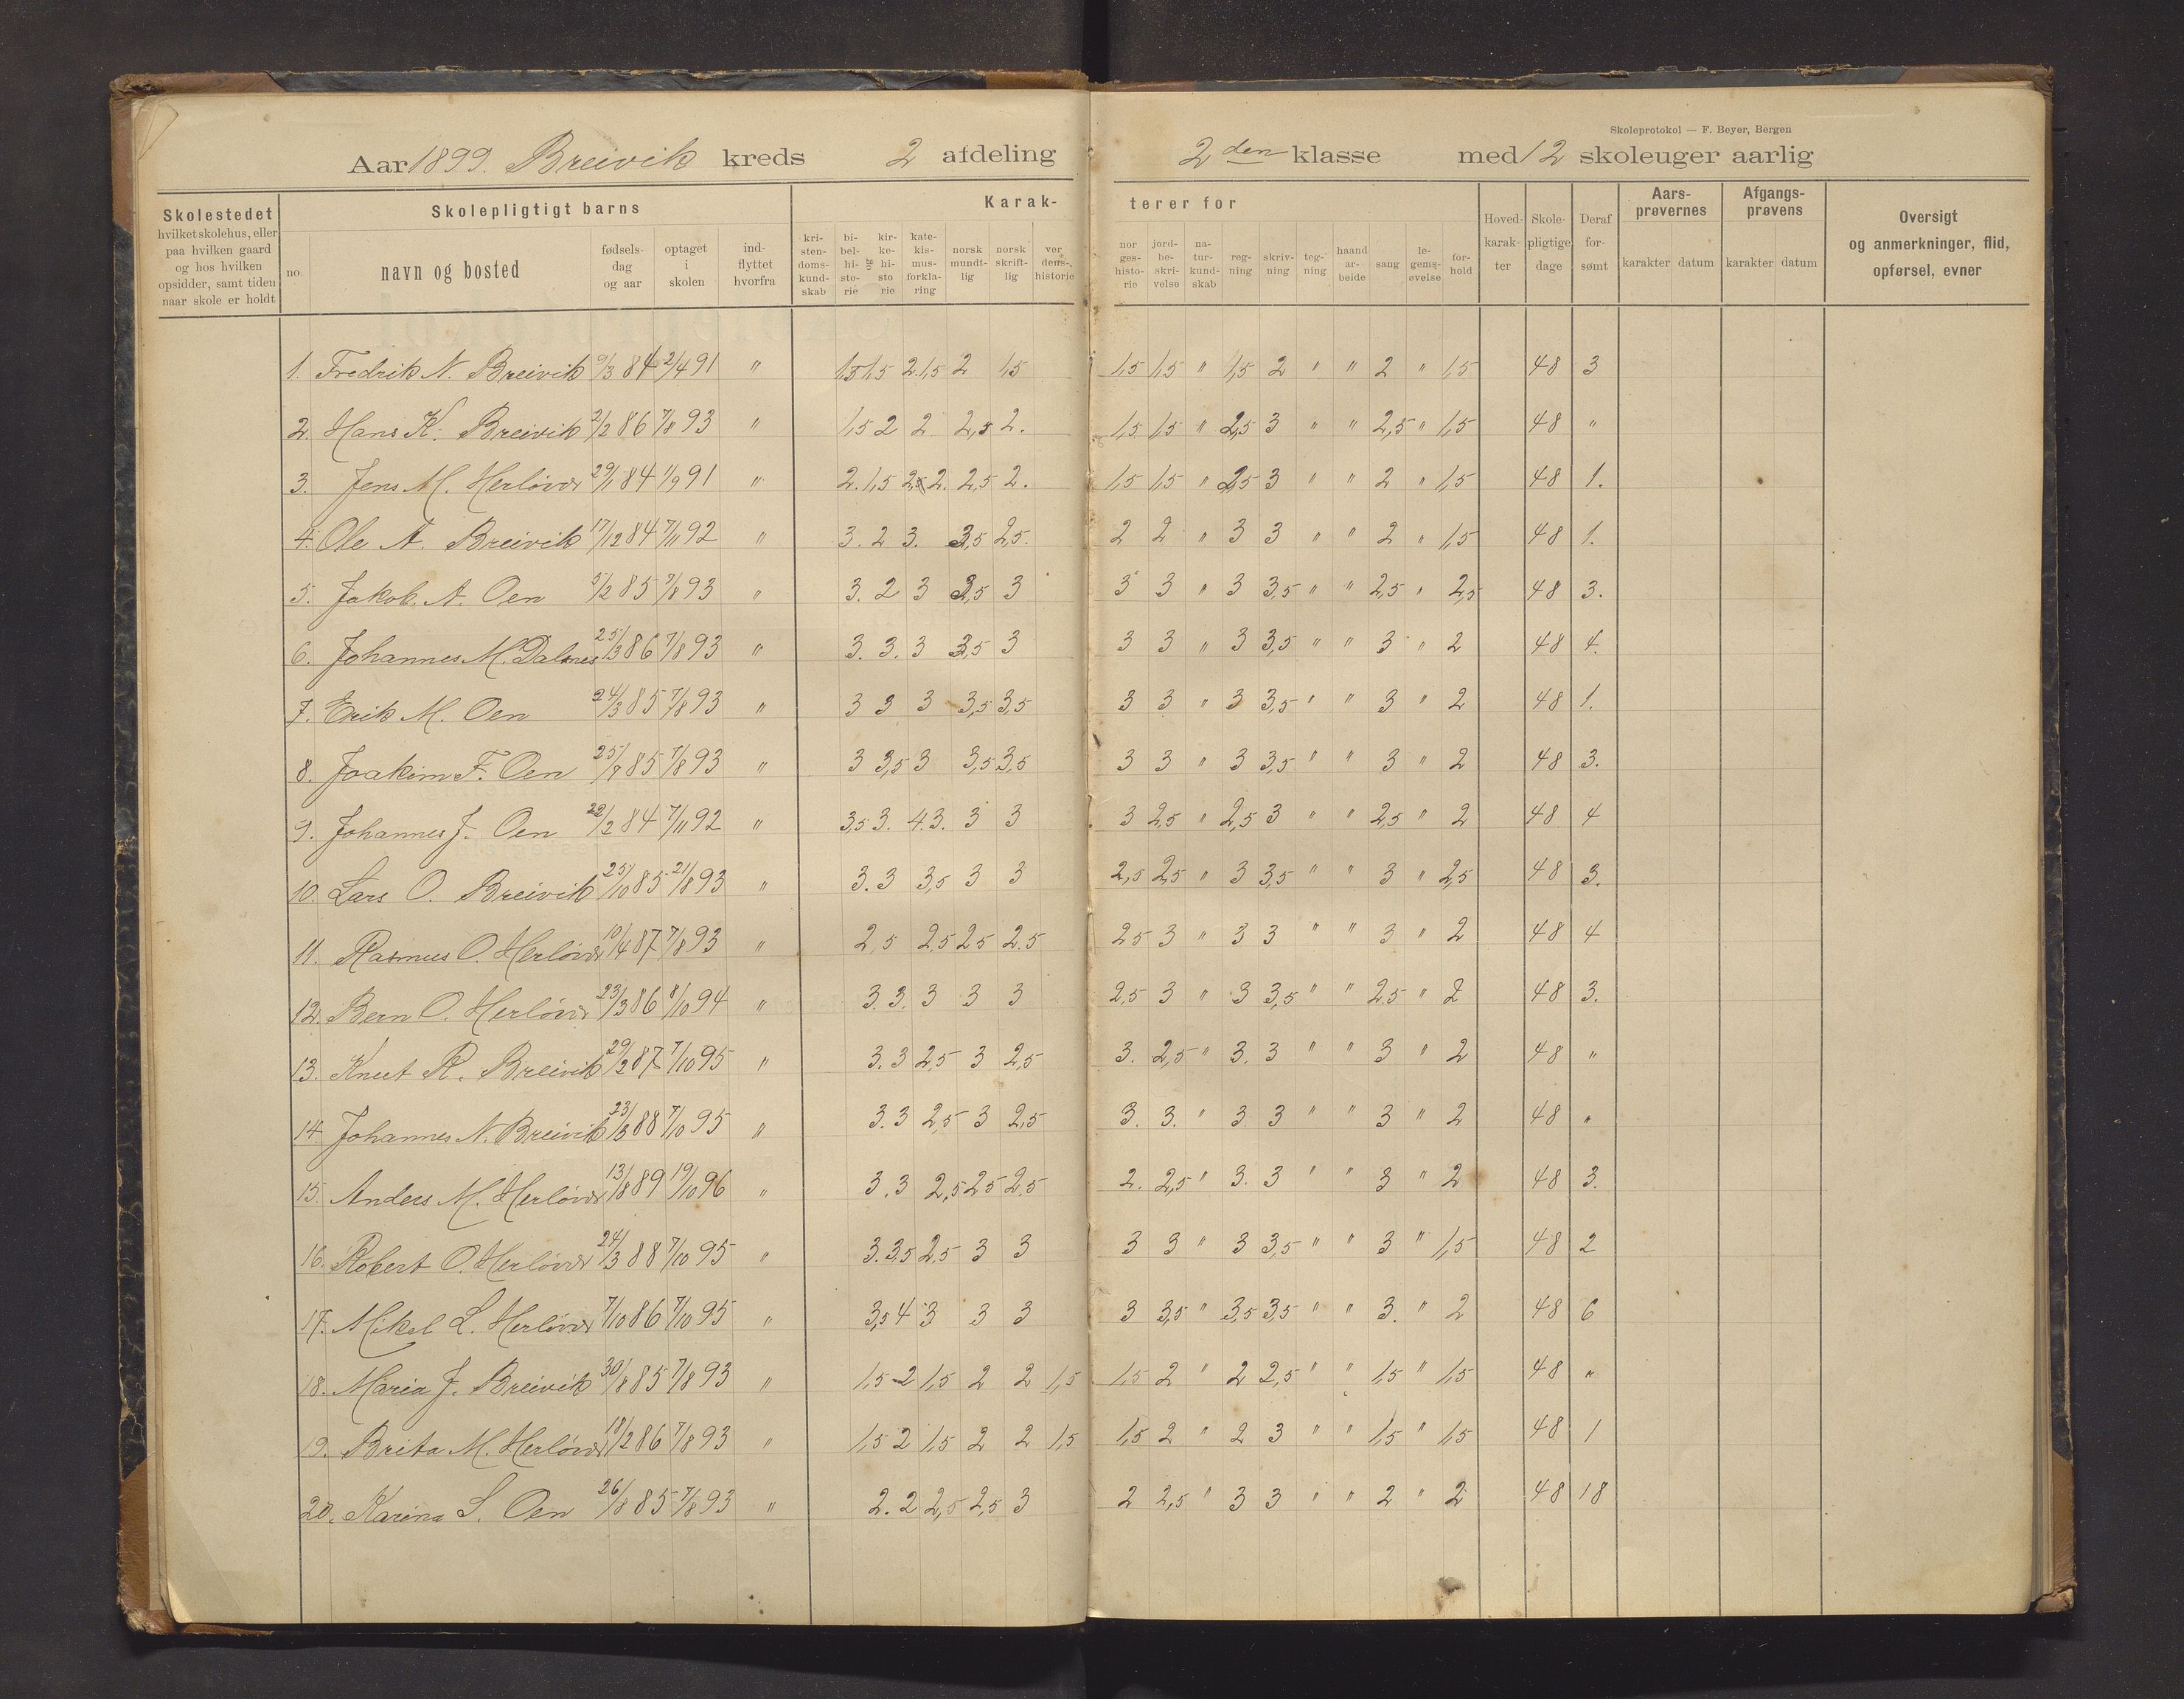 Skoleprotokol — F. Beyer, Bergen
Aar 1899. Breivik kreds 2 afdeling 2den klasse med 12 skoleuger aarlig
Skolestedet hvilket skolehus, eller paa hvilken gaard og hos hvilken opsidder, samt tiden naar skole er holdt
Skolepligtigt barns
no. navn og bosted fødsels-dag og aar optaget i skolen ind-flyttet hvorfra
Karak- terer for
kri-sten-doms-kund-skab bi-bel-hi-sto-rie og kir-ke-hi-sto rie kate-kis-mus-forkla-ring norsk mundt-lig norsk skrift-lig ver dens-historie
nor ges-histo-rie jord-be-skri-velse na-tur-kund-skab reg-ning skriv-ning teg-ning haand ar-beide sang le-gems-øvelse for-hold
Hoved-karak-ter Skole-pligtige dage Deraf for-sømt
Aars-prøvernes karakter datum
Afgangs-prøvens karakter datum
Oversigt og anmerkninger, flid, opførsel, evner
1. Fredrik N. Breivik 9/3 84 2/4 91 " 1,5 1,5 2. 1,5 2 1,5 1,5 1,5 " 1,5 2 " " 2 " 1,5 48 3
2. Hans K. Breivik 2/2 86 7/8 93 " 1,5 2 2 2,5 2. 1,5 1,5 " 2,5 3 " " 2,5 " 1,5 48 "
3. Jens M. Herløvær 29/1 84 1/9 91 " 2. 1,5 2,5 2. 2,5 2. 1,5 1,5 " 2,5 3 " " 2 " 1,5 48 1.
4. Ole A. Breivik 17/12 84 7/11 92 " 3. 2 3. 3,5 2,5. 2 2 " 3 3 " " 2 " 1,5 48 1.
5. Jakob. A. Oen 5/2 85 7/8 93 " 3. 2 3 3,5 3 3 3 " 3 3,5 " " 2,5 " 2,5 48 3.
6. Johannes M. Dalsnes 25/3 86 7/8 93 " 3. 3. 3 3,5 3 3 3 " 3 3,5 " " 3 " 2 48 4.
7. Erik M. Oen 24/3 85 7/8 93 " 3 3 3 3,5 3,5 3 3 " 3 3,5 " " 3 " 2 48 1.
8. Joakim F. Oen 25/7 85 7/8 93 " 3 3,5 3 3,5 3,5 3 3 " 3 3,5 " " 3 " 2 48 3.
9. Johannes J. Oen 22/2 84 7/11 92 " 3,5 3. 4. 3. 3 3 3 2,5 " 2,5 3 " " 2,5 " 2 48 4
10. Lars O. Breivik 25/10 85 21/8 93 " 3. 3 3,5 3 3 2,5 2,5 " 3 3,5 " " 3 " 2,5 48 3.
11. Rasmus O. Herløvær 10/4 87 7/8 93 " 2,5 2,5 2,5 2.5 2 5 3 " 3 3 " " 3 " 2 48 4
12. Bern O. Herløvær 23/3 86 8/10 94 " 3. 3. 3 3 3 2,5 3 " 3 3,5 " " 2,5 " 2 48 3.
13. Knut R. Breivik 29/2 87 7/10 95 " 3. 3 2,5 3 2,5 3. 2,5 " 3. 3 " " 3 " 2 48 "
14. Johannes N. Breivik 23/3 88 7/10 95 " 3. 3 2,5 3 2,5 3. 3. " 3 3 " " 3 " 2 48 "
15. Anders M. Herløvær 13/8 89 19/10 96 " 3. 3 2,5 2,5 2,5 2. 2,5 " 3. 3 " " 3 " 2 48 3.
16. Robert O. Herløvær 24/3 88 7/10 95 " 3. 3,5 2,5 3 3 3 3 " 3 3,5 " " 3 " 1,5 48 2
17. Mikel L. Herløvær 7/10 86 7/10 95 " 3,5 4 3 3 3 3 3,5 " 3,5 3,5 " " 3. " 2 48 6
18. Maria J. Breivik 30/8 85 7/8 93 " 1,5 2 1,5 2 2 1,5 1,5 2 " 2 2,5 " " 1,5 " 1,5 48 "
19. Brita M. Herløvær 18/2 86 7/8 93 " 1,5 2 1,5 2 2 1,5 1,5 2 " 2 3 " " 1,5 " 1,5 48 1
20. Karina S. Oen 26/8 85 7/8 93 " 2. 2 2,5 2,5 3 2 2,5 " 3 3 " " 2 " 2 48 18